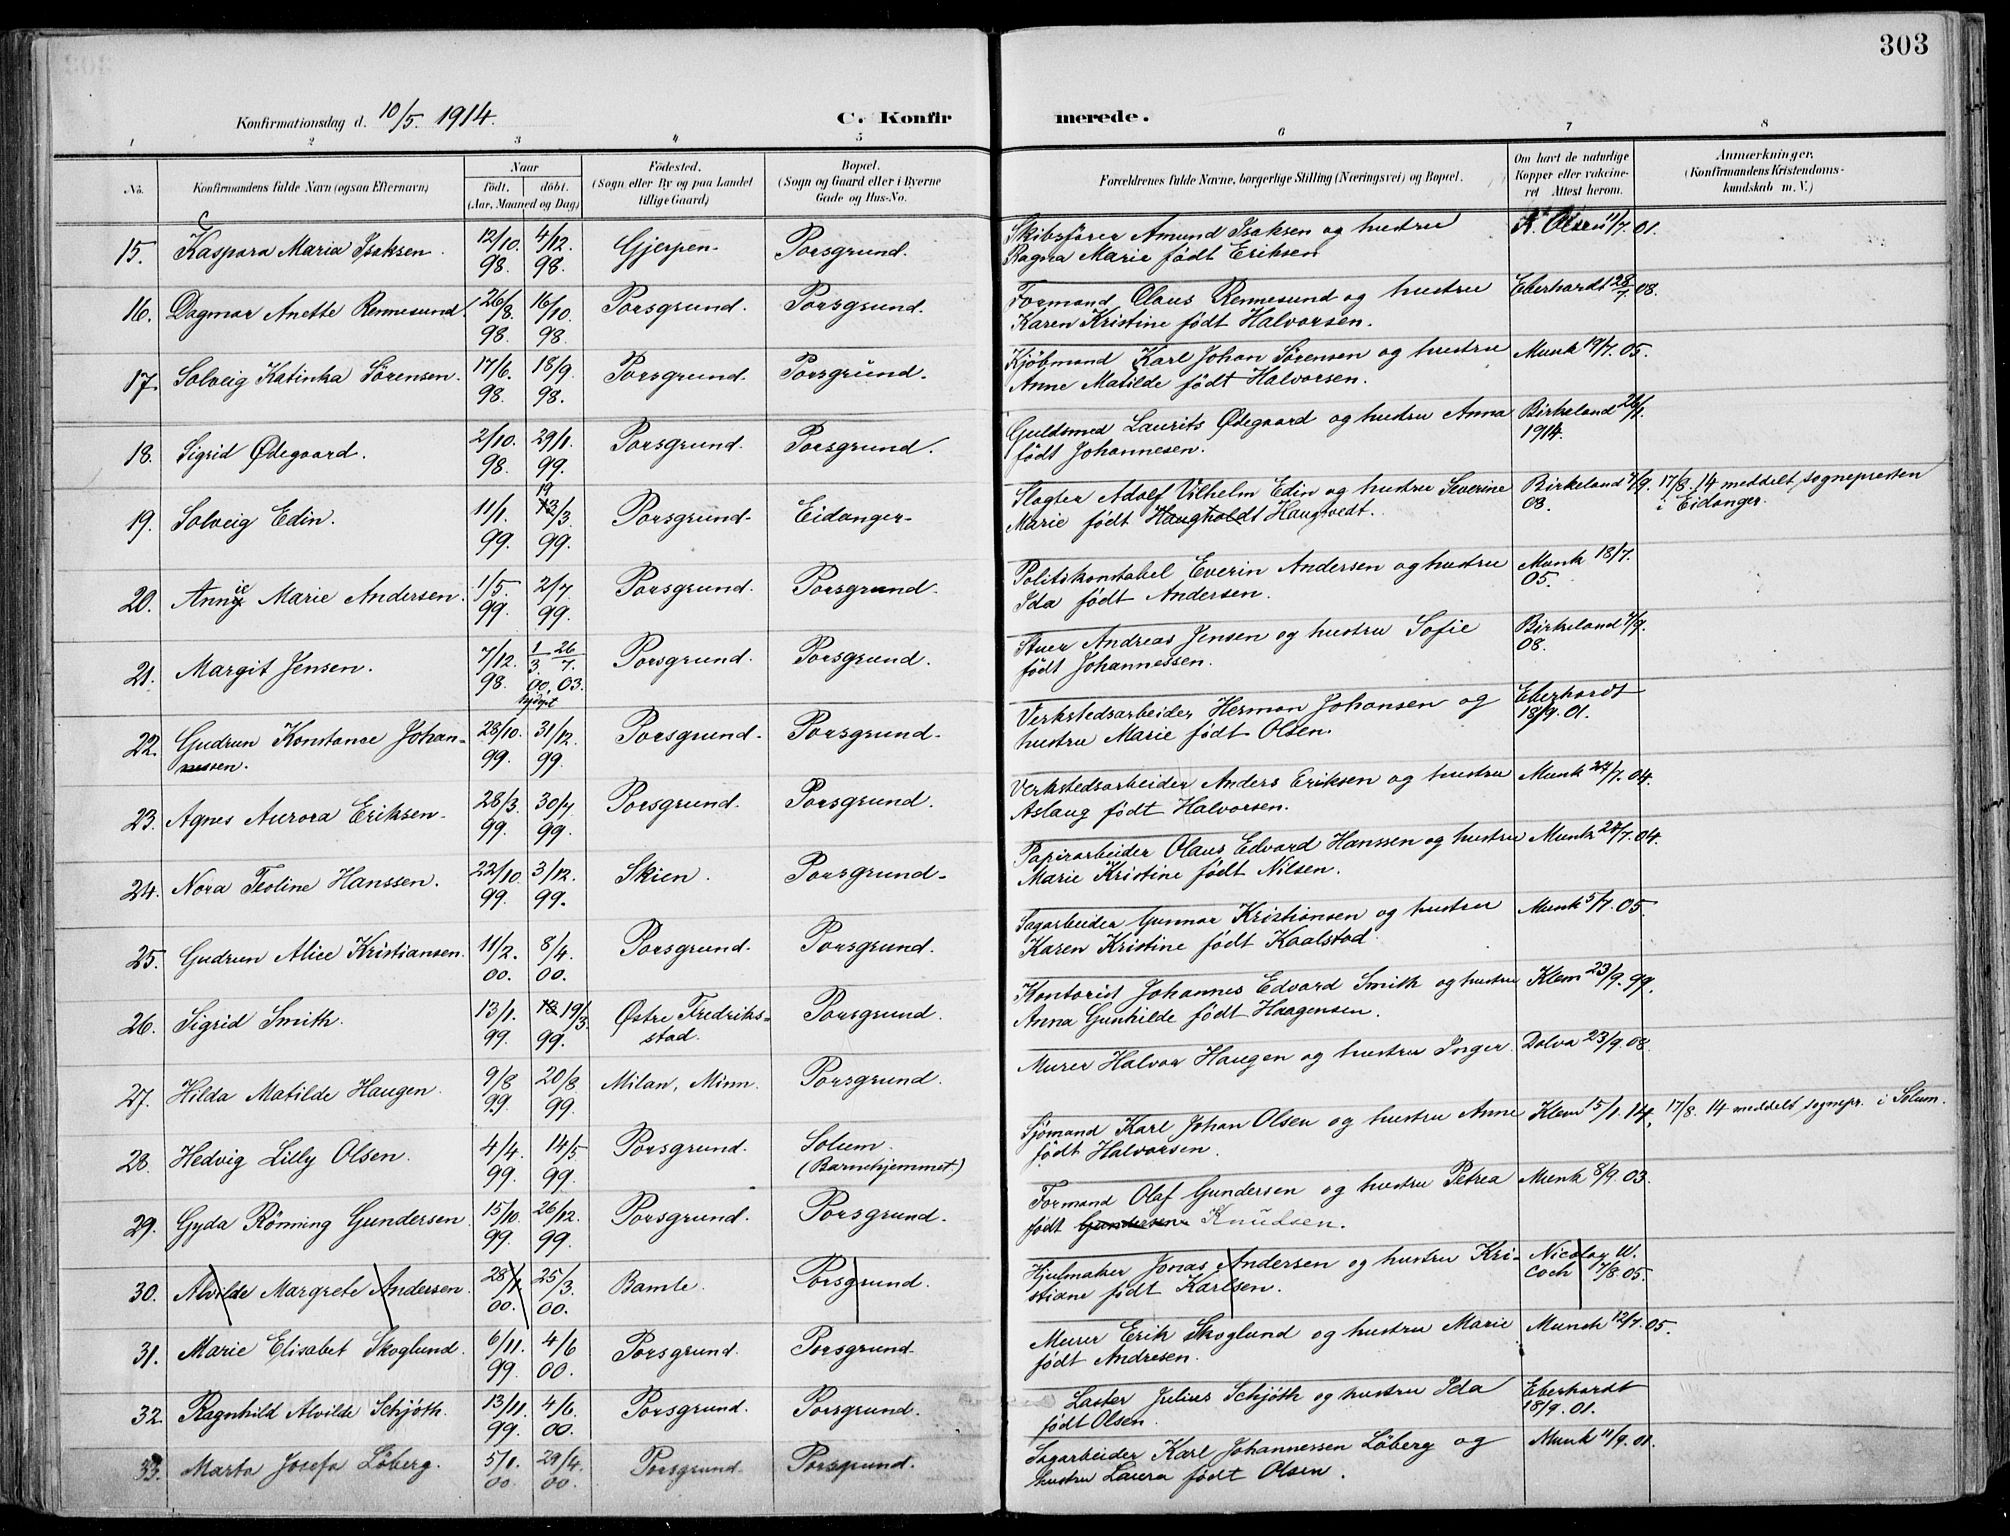 303
Konfirmationsdag d. 10/5. 1914.
C. Konfir
merede.
1 2 3 4 5 6 7 8
No.
Konfirmandens fulde Navn (ogsaa Efternavn)
Naar
födt. döbt.
(Aar, Maaned og Dag)
Födested.
(Sogn eller By og paa Landet
tillige Gaard)
Bopæl.
(Sogn og Gaard eller i Byerne
Gade og Hus-No.
Forældrenes fulde Navne, borgerlige Stilling (Næringsvei) og Bopæl.
Om havt de naturlige
Kopper eller vakcine-
ret Attest herom.
Anmærkninger.
(Konfirmandens Kristendoms-
kundskab m. V.)
15. Kaspara Maria Isaksen. 12/10. 98. 4/12. 98. Gjerpen. Porsgrund. Skibsfører Amund Isaksen og hustru K. Olsen 11/7. 01.
C
Ragna Marie født Eriksen
16. Dagmar Anette Rennesund 26/8. 98. 16/10. 98. Porsgrund. Porsgrund. Formand Olaus Rennesund og hustru Eberhardt 28/7. 08.
Karen Kristine født Halvorsen.
17. Solveig Katinka Sørensen. 17/6. 98. 18/9. 98. Porsgrund. Porsgrund. Kjøbmand Karl Johan Sørensen og hustru Munk 19/7. 05.
Anne Matilde født Halvorsen.
18. Sigrid Ødegaard. 2/10. 98. 29/1. 99. Porsgrund. Porsgrund. Guldsmed Laurits Ødegaard og hustru Anna Birkeland 26/1.
født Johannesen. 1914.
19. Solveig Edin. 11/1. 99. 19 /3. 99. Porsgrund. Eidanger. Slagter Adolf Vilhelm Edin og hustru Severine Birkeland 4/9. 17/8. 14 meddelt sognepresten
Marie født Haugholdt Haugtvedt. 08. i Eidanger.
20. Annie Marie Andersen. 1/5. 99. 2/7. 99. Porsgrund. Porsgrund. Politikonstabel Everin Andersen og hustru Munk 18/7.
Ida født Andersen. 05.
21. Margit Jensen. 7/12. 98. 1/3. 00, 26/7. 03. Porsgrund. Porsgrund. Stuer Andreas Jensen og hustru Sofie Birkeland 4/9.
født Johannessen. 08.
22. Gudrun Konstance Johan- 28/10. 99. 31/12. 99. Porsgrund. Porsgrund. Verkstedsarbeider Herman Johansen og Eberhardt
nessen. hustru Marie født Olsen. 18/9. 01.
23. Agnes Aurora Eriksen. 28/3. 99. 30/7. 99. Porsgrund. Porsgrund. Verkstedsarbeider Anders Eriksen og hustru Munk 27/7. 04.
Aslaug født Halvorsen.
24. Nora Teoline Hanssen. 22/10. 99. 3/12. 99. Skien. Porsgrund. Papirarbeider Olaus Edvard Hanssen og hustru Munk 27/7. 04.
Marie Kristine født Nilsen.
25. Gudrun Alice Kristiansen. 11/2. 00. 8/4. 00. Porsgrund. Porsgrund. Sagarbeider Gunnar Kristiansen og hustru Munk 5/7. 05.
Karen Kristine født Kaalstad.
26. Sigrid Smith. 13/1. 99. 19/3. 99. Østre Fredriks- Porsgrund. Kontorist Johannes Edvard Smith og hustru Klem 23/9. 99.
stad. Anna Gunhilde født Haagensen.
27. Hilda Matilde Haugen. 9/8 99 20/8. 99. Milan, Minn. Porsgrund. Murer Halvor Haugen og hustru Inger. Dolva 23/9. 08.
28. Hedvig Lilly Olsen. 4/4. 99. 14/5 99. Porsgrund. Solum. Sjømand Karl Johan Olsen og hustru Anne Klem 15/1. 14. 17/8. 14 meddelt sognepr. i Solum.
(Barnehjemmet.) født Halvorsen.
29. Gyda Rönning Gundersen 15/10. 99. 26/12. 99. Porsgrund. Porsgrund. Formand Olaf Gundersen og hustru Petrea Munk 8/9. 03.
født Gundersen Knudsen.
30. Alvilde Margrete Andersen. 28/1. 00. 25/3. 00. Bamle. Porsgrund. Hjulmaker Jonas Andersen og hustru Kri- Nicolay W.
stiane født Karlsen. Coch 7/8. 05.
31. Marie Elisabet Skoglund. 6/11. 99. 4/6 00. Porsgrund. Porsgrund. Murer Erik Skoglund og hustru Marie Munch 12/7. 05.
født Andresen.
32. Ragnhild Alvilde Schjöth. 13/11. 99. 4/6. 00. Porsgrund. Porsgrund. Laster Julius Schjöth og hustru Ida Eberhardt
født Olsen. 18/9. 01.
33. Marta Josefa Löberg. 5/1. 00. 29/4. 00. Porsgrund. Porsgrund. Sagarbeider Karl Johannessen Löberg og Munk 11/9. 01.
hustru Laura født Olsen.